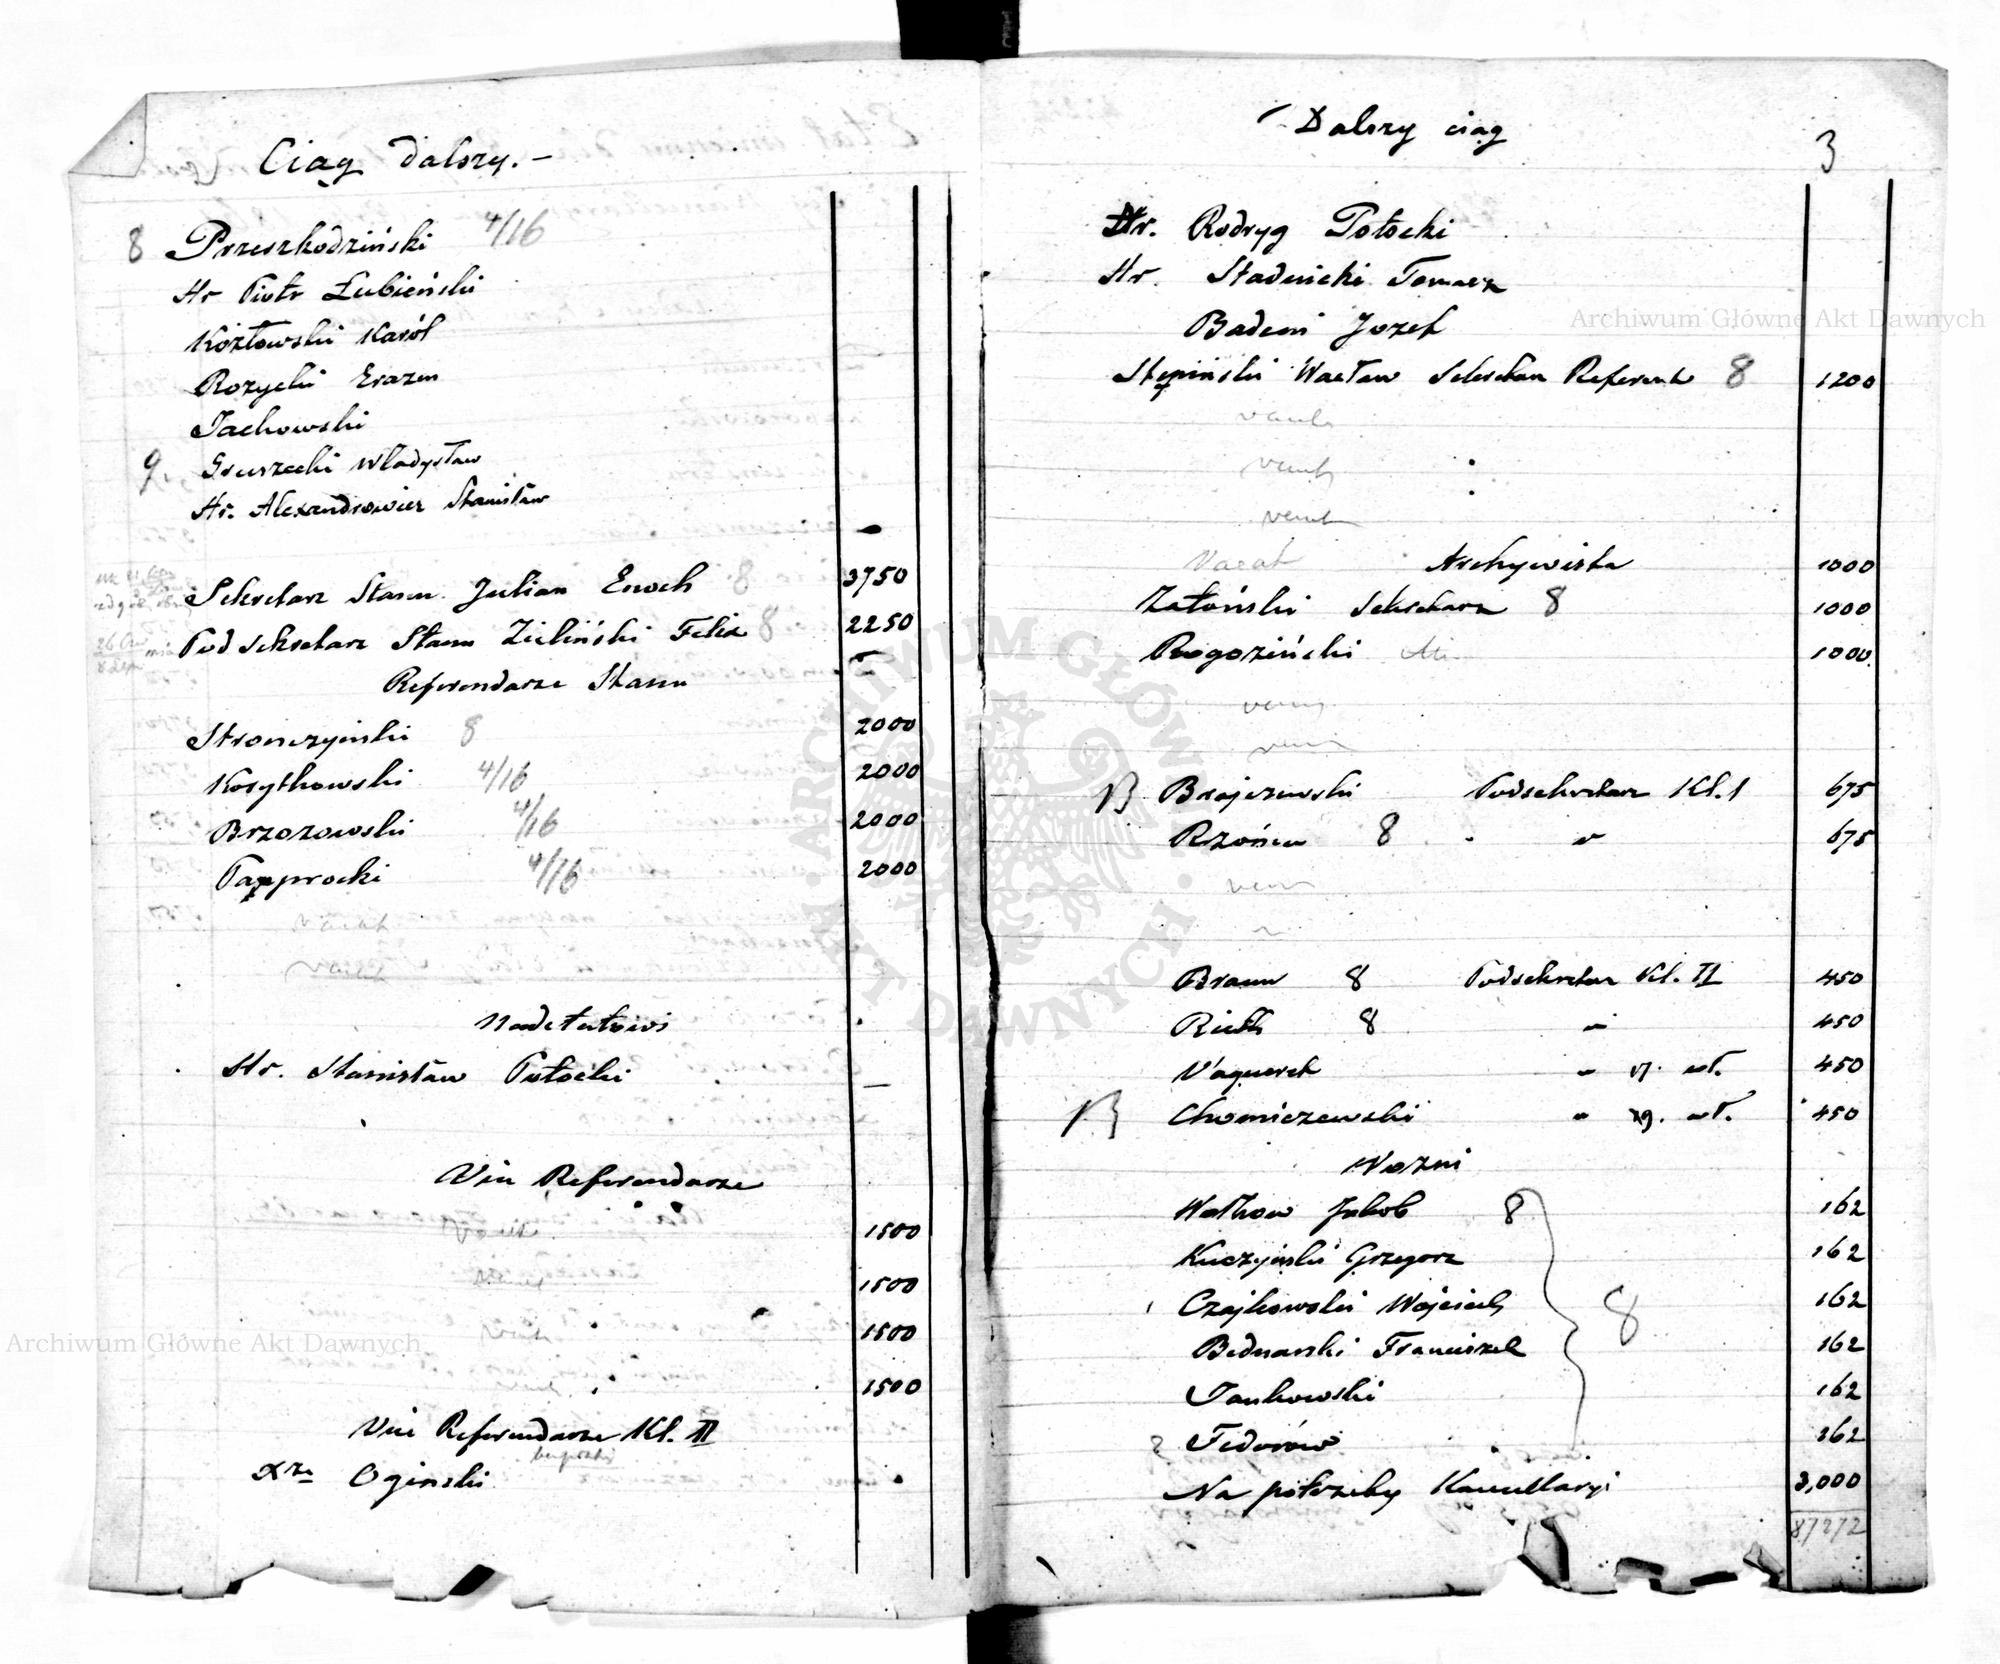 Ciąg dalszy.-
8 Przeszkodziński 4/16
Hr Piotr Łubieński
Kozłowski Karól
Rozycki Erazm
Jachowski
9. Gruszecki Władysław
Hr. Alexandrowicz Stanisław
Sekretarz Stanu Julian Enoch 8 3750
Pod Sekretarz Stanu Zieliński Felix 8 2250
Referendarze Stanu
Stronczyński 8 2000
Kosythowski 4/16 2000
Brzozowski 4/16 2000
Paprocki 4/16 2000
vacat
vacat
Nadetatowi
Hr. Stanisław Potocki —
Vice Referendarze
Vacat 1500
vacat 1500
vacat 1500
vacat 1500
Vice Referendarze Kl. II
bezpłatni
Xże Oginski
Dalszy ciąg
3
Hr. Rodryg Potocki
Hr. Stadnicki Tomasz
Badeni Jozef
Stępiński Wacław Sekretarz Referent 8 1200
vacat
vacat
vacat
Vacat Archywista 1000
Zatoński Sekretarz 8 1000
Rogoziński 1000
vacat
vacat
B Brojczewski Podsekretarz Kl. I 675
Rzońca 8 " 675
vacat
Braun 8 Podsekretarz Kl. II 450
Rieth 8 " 450
Vaqueret " 450
B Chomiczewski " 450
Wozni
Wołkow Jakob 8 162
Kuczyński Grzegorz 162
Czajkowski Wojciech 162
8
Bednarski Franciszek 162
Jankowski 162
Fedorów 162
Na potrzeby Kancellaryi 3,000
87272
Archiwum Główne Akt Dawnych
Archiwum Główne Akt Dawnych
ARCHIWUM GŁÓWNE AKT DAWNYCH